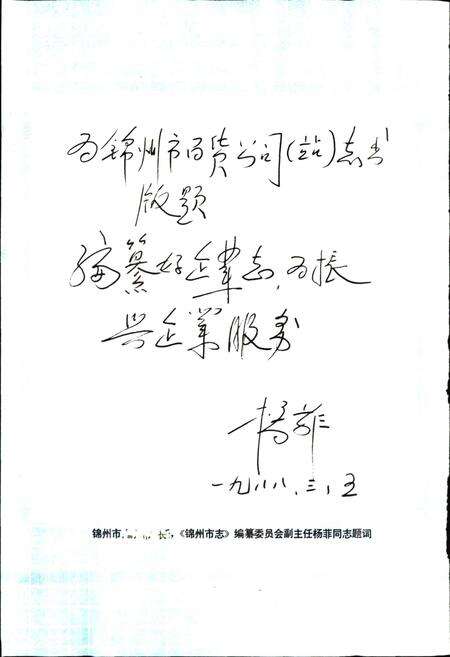 为锦州市百货公司(站)志出
版题
编纂好企業志,为振
兴企業服务
杨菲
一九八八.三.五
锦州市 长,《锦州市志》编纂委员会副主任杨菲同志题词